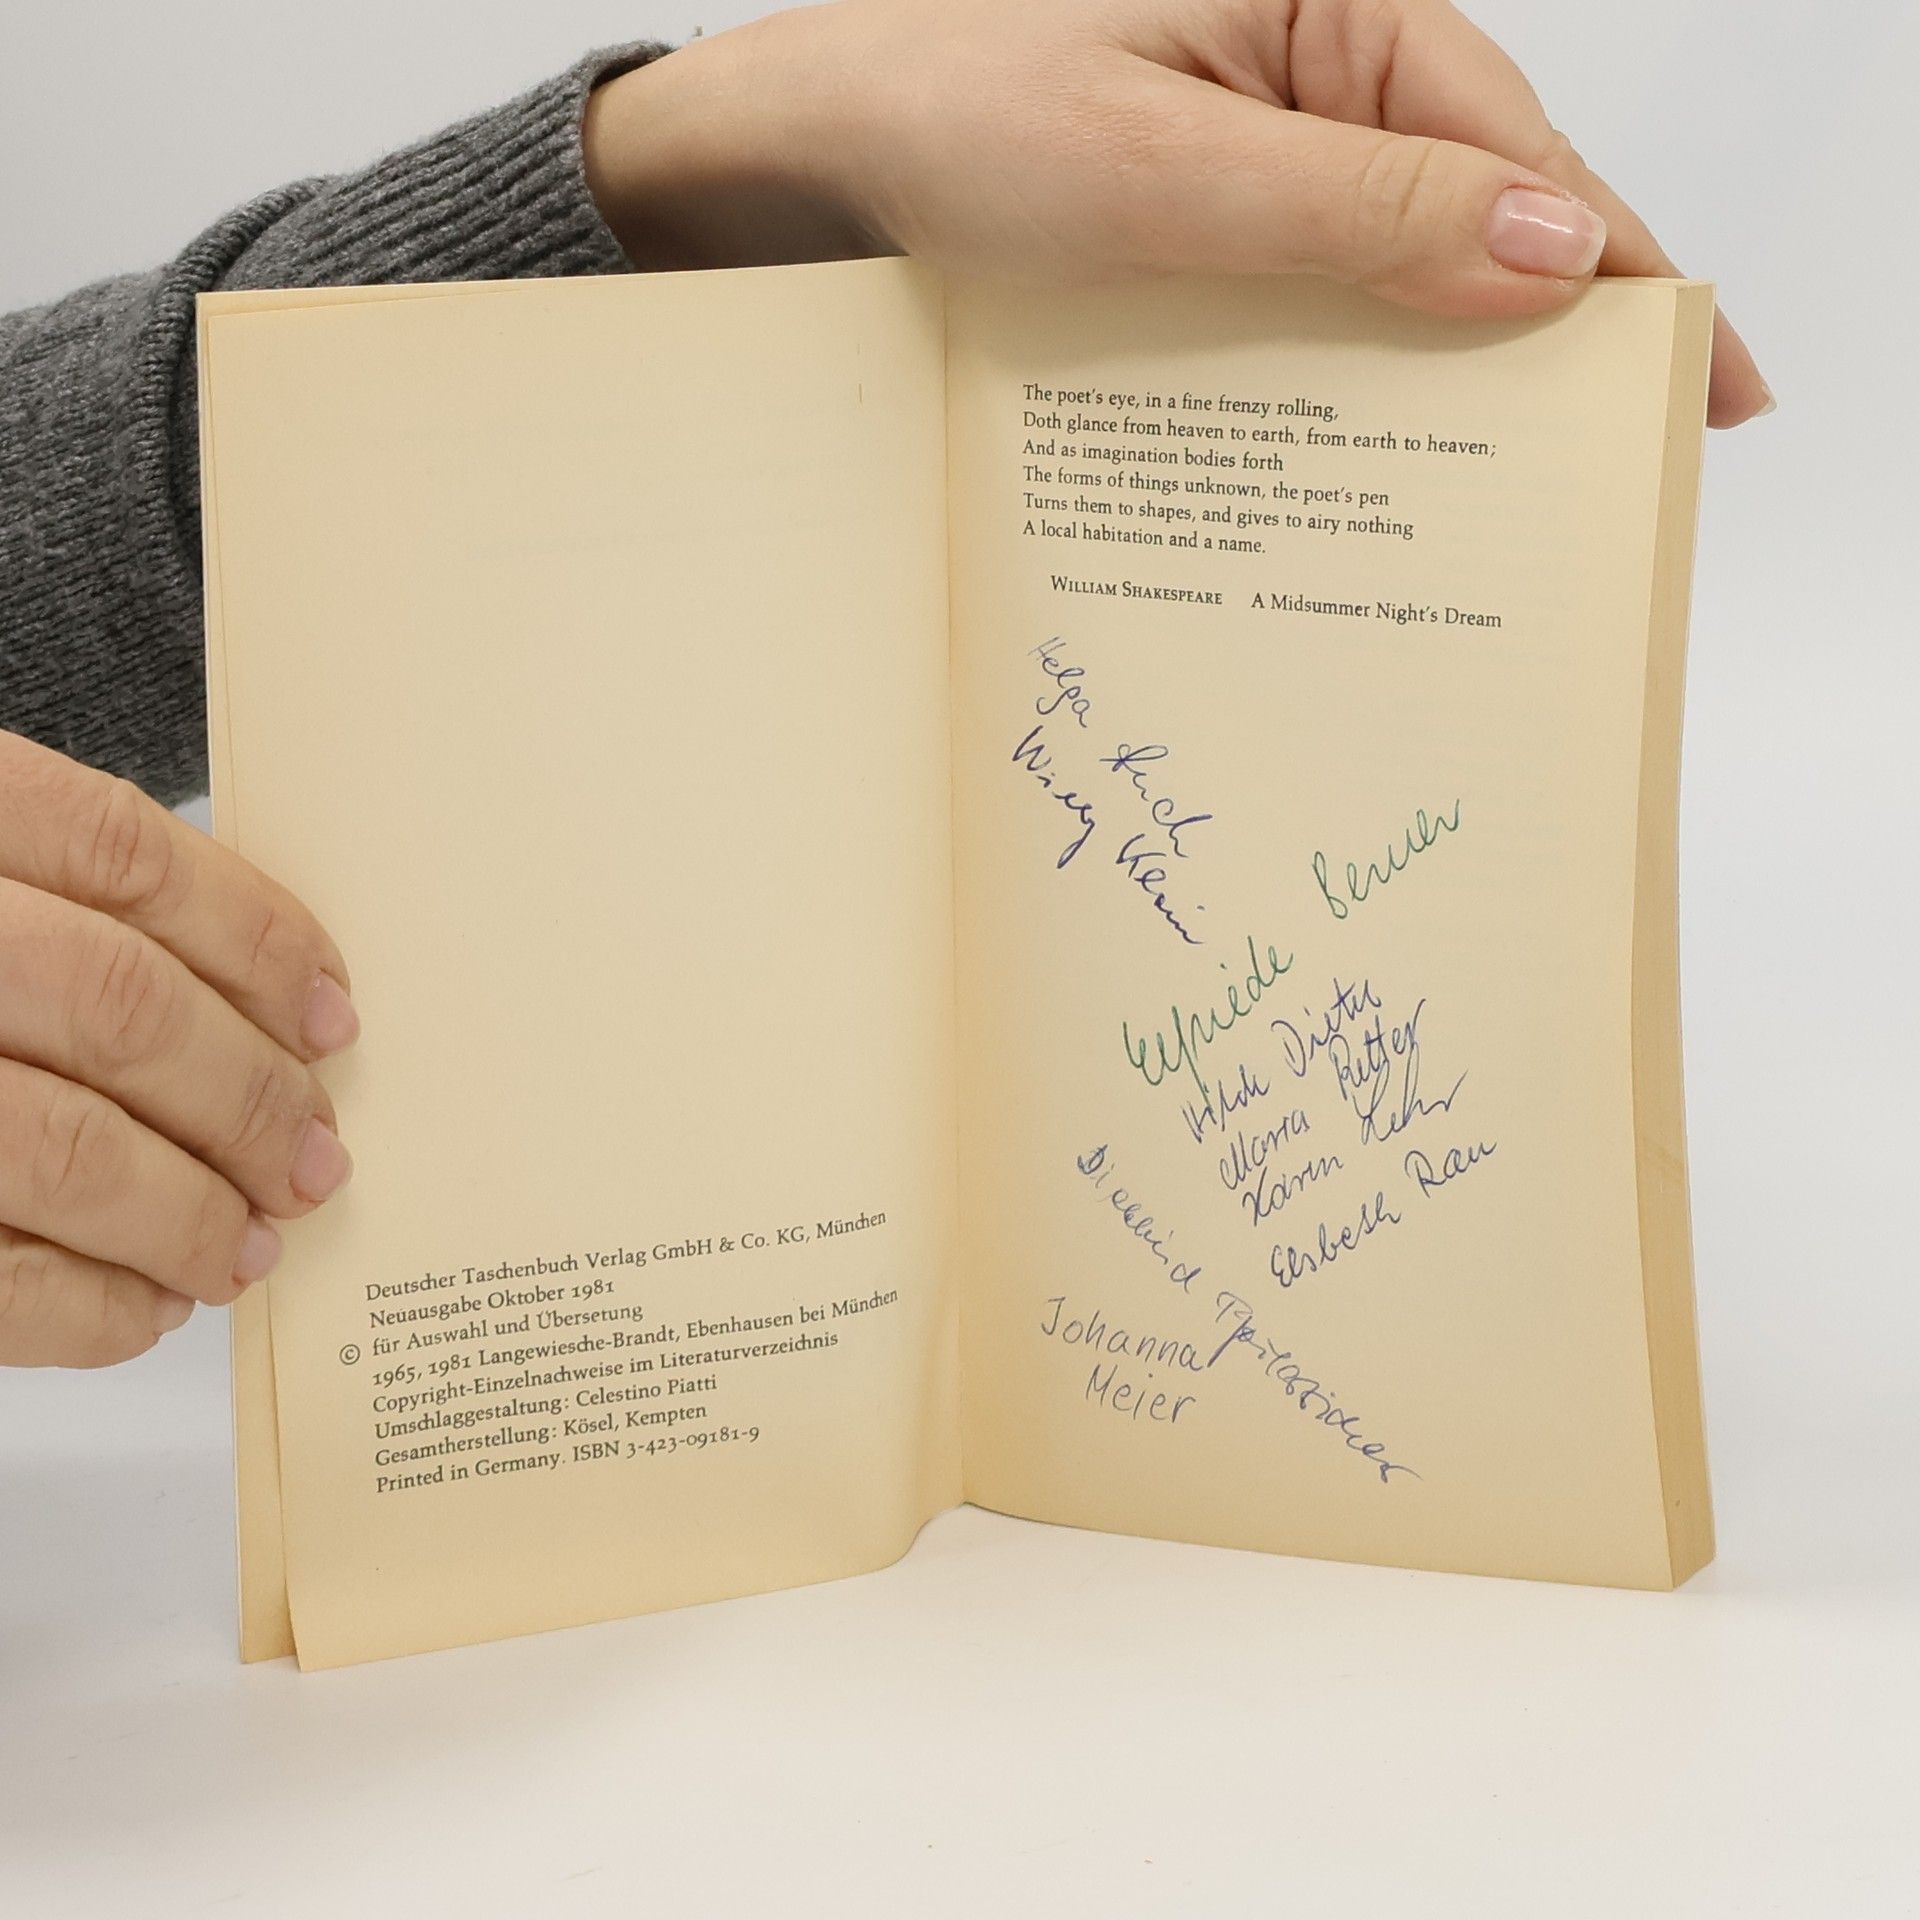 Deutscher Taschenbuch Verlag GmbH & Co. KG, München
Neuausgabe Oktober 1981
© für Auswahl und Übersetung
1965, 1981 Langewiesche-Brandt, Ebenhausen bei München
Copyright-Einzelnachweise im Literaturverzeichnis
Umschlaggestaltung: Celestino Piatti
Gesamtherstellung: Kösel, Kempten
Printed in Germany. ISBN 3-423-09181-9
The poet's eye, in a fine frenzy rolling,
Doth glance from heaven to earth, from earth to heaven;
And as imagination bodies forth
The forms of things unknown, the poet's pen
Turns them to shapes, and gives to airy nothing
A local habitation and a name.
WILLIAM SHAKESPEARE A Midsummer Night's Dream
Helga
Willy Klein
Elfriede
Dieter
Maria Retter
Karin Lehr
Elsbeth Rau
Johanna
Meier